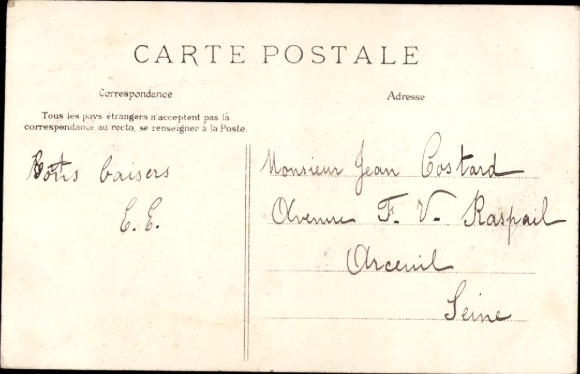 CARTE POSTALE
Correspondance
Adresse
Tous les pays étrangers n'acceptent pas la
correspondance au recto, se renseigner à la Poste.
Bons baisers
E. E.
Monsieur Jean Costard
Avenue F. V. Raspail
Arceuil
Seine